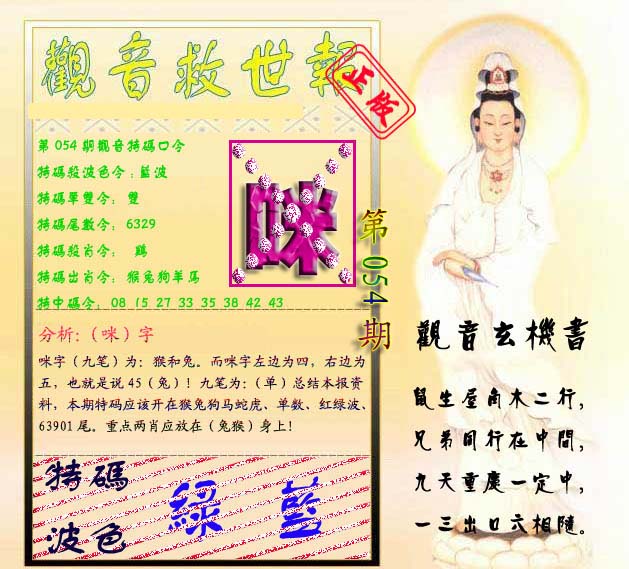 觀音救世報
正版
第054期觀音特碼口令
特碼殺波色令:藍波
特碼單雙令: 雙
特碼尾數令: 6329
特碼殺肖令: 鷄
特碼出肖令: 猴兔狗羊馬
特中碼令: 08 15 27 33 35 38 42 43
咪
第054期
分析:(咪)字
咪字(九笔)为:猴和兔。而咪字左边为四,右边为
五,也就是说45(兔)!九笔为:(单)总结本报资
料,本期特码应该开在猴兔狗马蛇虎、单数、红绿波、
63901尾。重点两肖应放在(兔猴)身上!
特碼
波色
綠 藍
觀音玄機書
鼠生屋角木二行,
兄弟同行在中間,
九天重慶一定中,
一三出口六相隨。